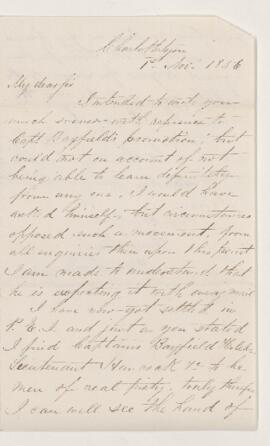 Charlottetown
1st Nov. 1856
My dear Sir
I intended to write you
much sooner with reference to
Capt Bayfield's promotion; but
could not on account of not
being able to learn definitely
from any one. I would have
asked himself, but circumstances
opposed such a movement, from
all inquiries then upon this point
I am made to understand that
he is expecting it with every mail
I have now got settled in
P. E. I. and just as you stated
I find Captains Bayfield &
Lieutenant Hancock to be
men of real piety, truly
I can well see the hand of